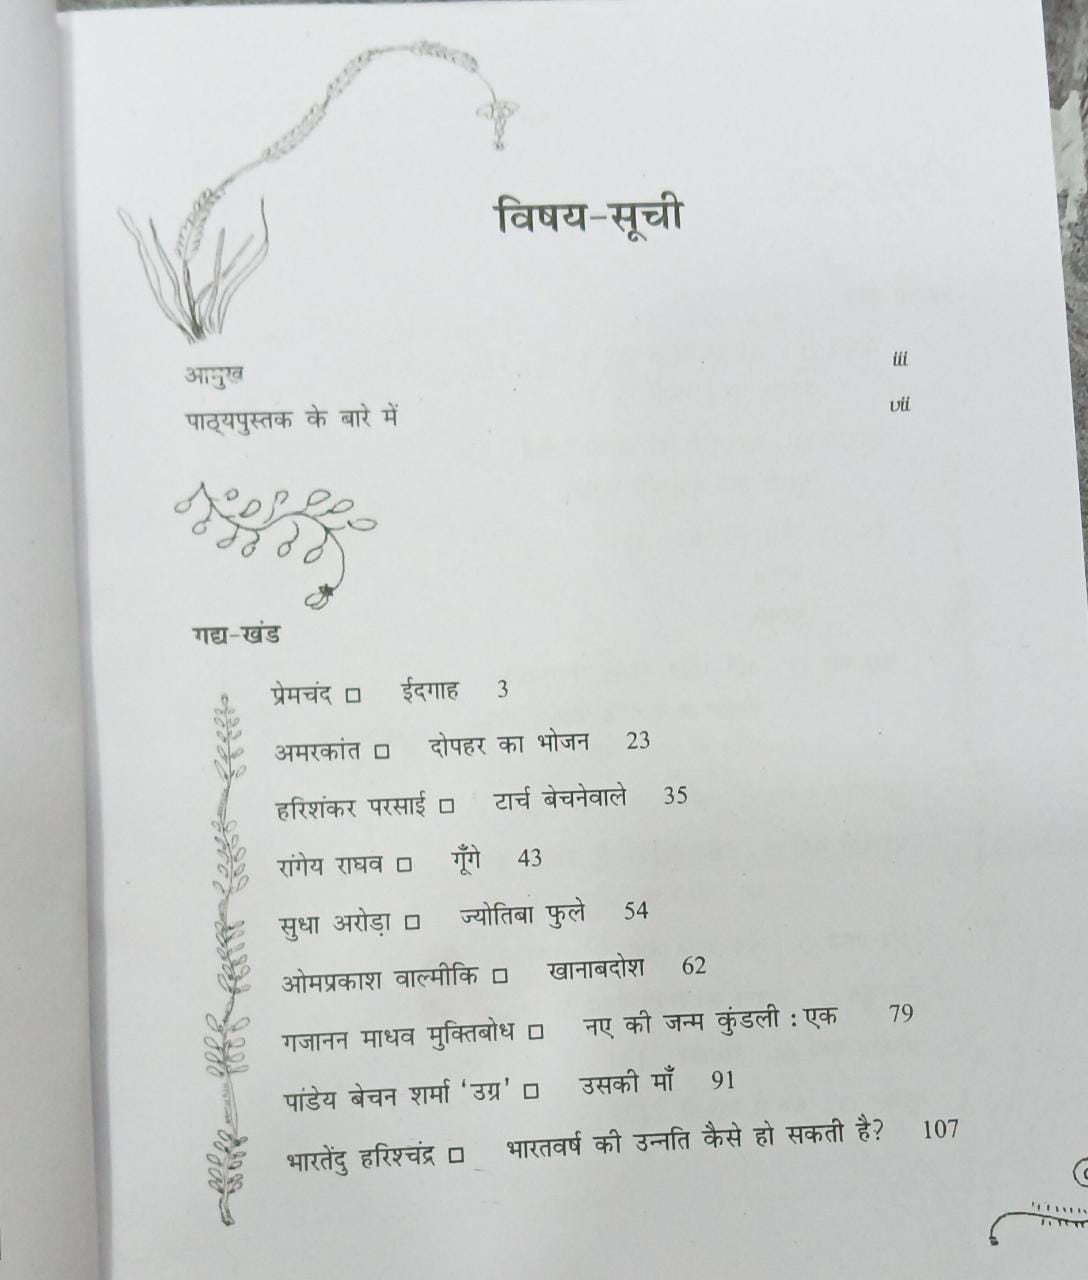 विषय-सूची
आमुख iii
पाठ्यपुस्तक के बारे में vii
गद्य-खंड
प्रेमचंद □ ईदगाह 3
अमरकांत □ दोपहर का भोजन 23
हरिशंकर परसाई □ टार्च बेचनेवाले 35
रांगेय राघव □ गूँगे 43
सुधा अरोड़ा □ ज्योतिबा फुले 54
ओमप्रकाश वाल्मीकि □ खानाबदोश 62
गजानन माधव मुक्तिबोध □ नए की जन्म कुंडली : एक 79
पांडेय बेचन शर्मा ‘उग्र’ □ उसकी माँ 91
भारतेंदु हरिश्चंद्र □ भारतवर्ष की उन्नति कैसे हो सकती है? 107